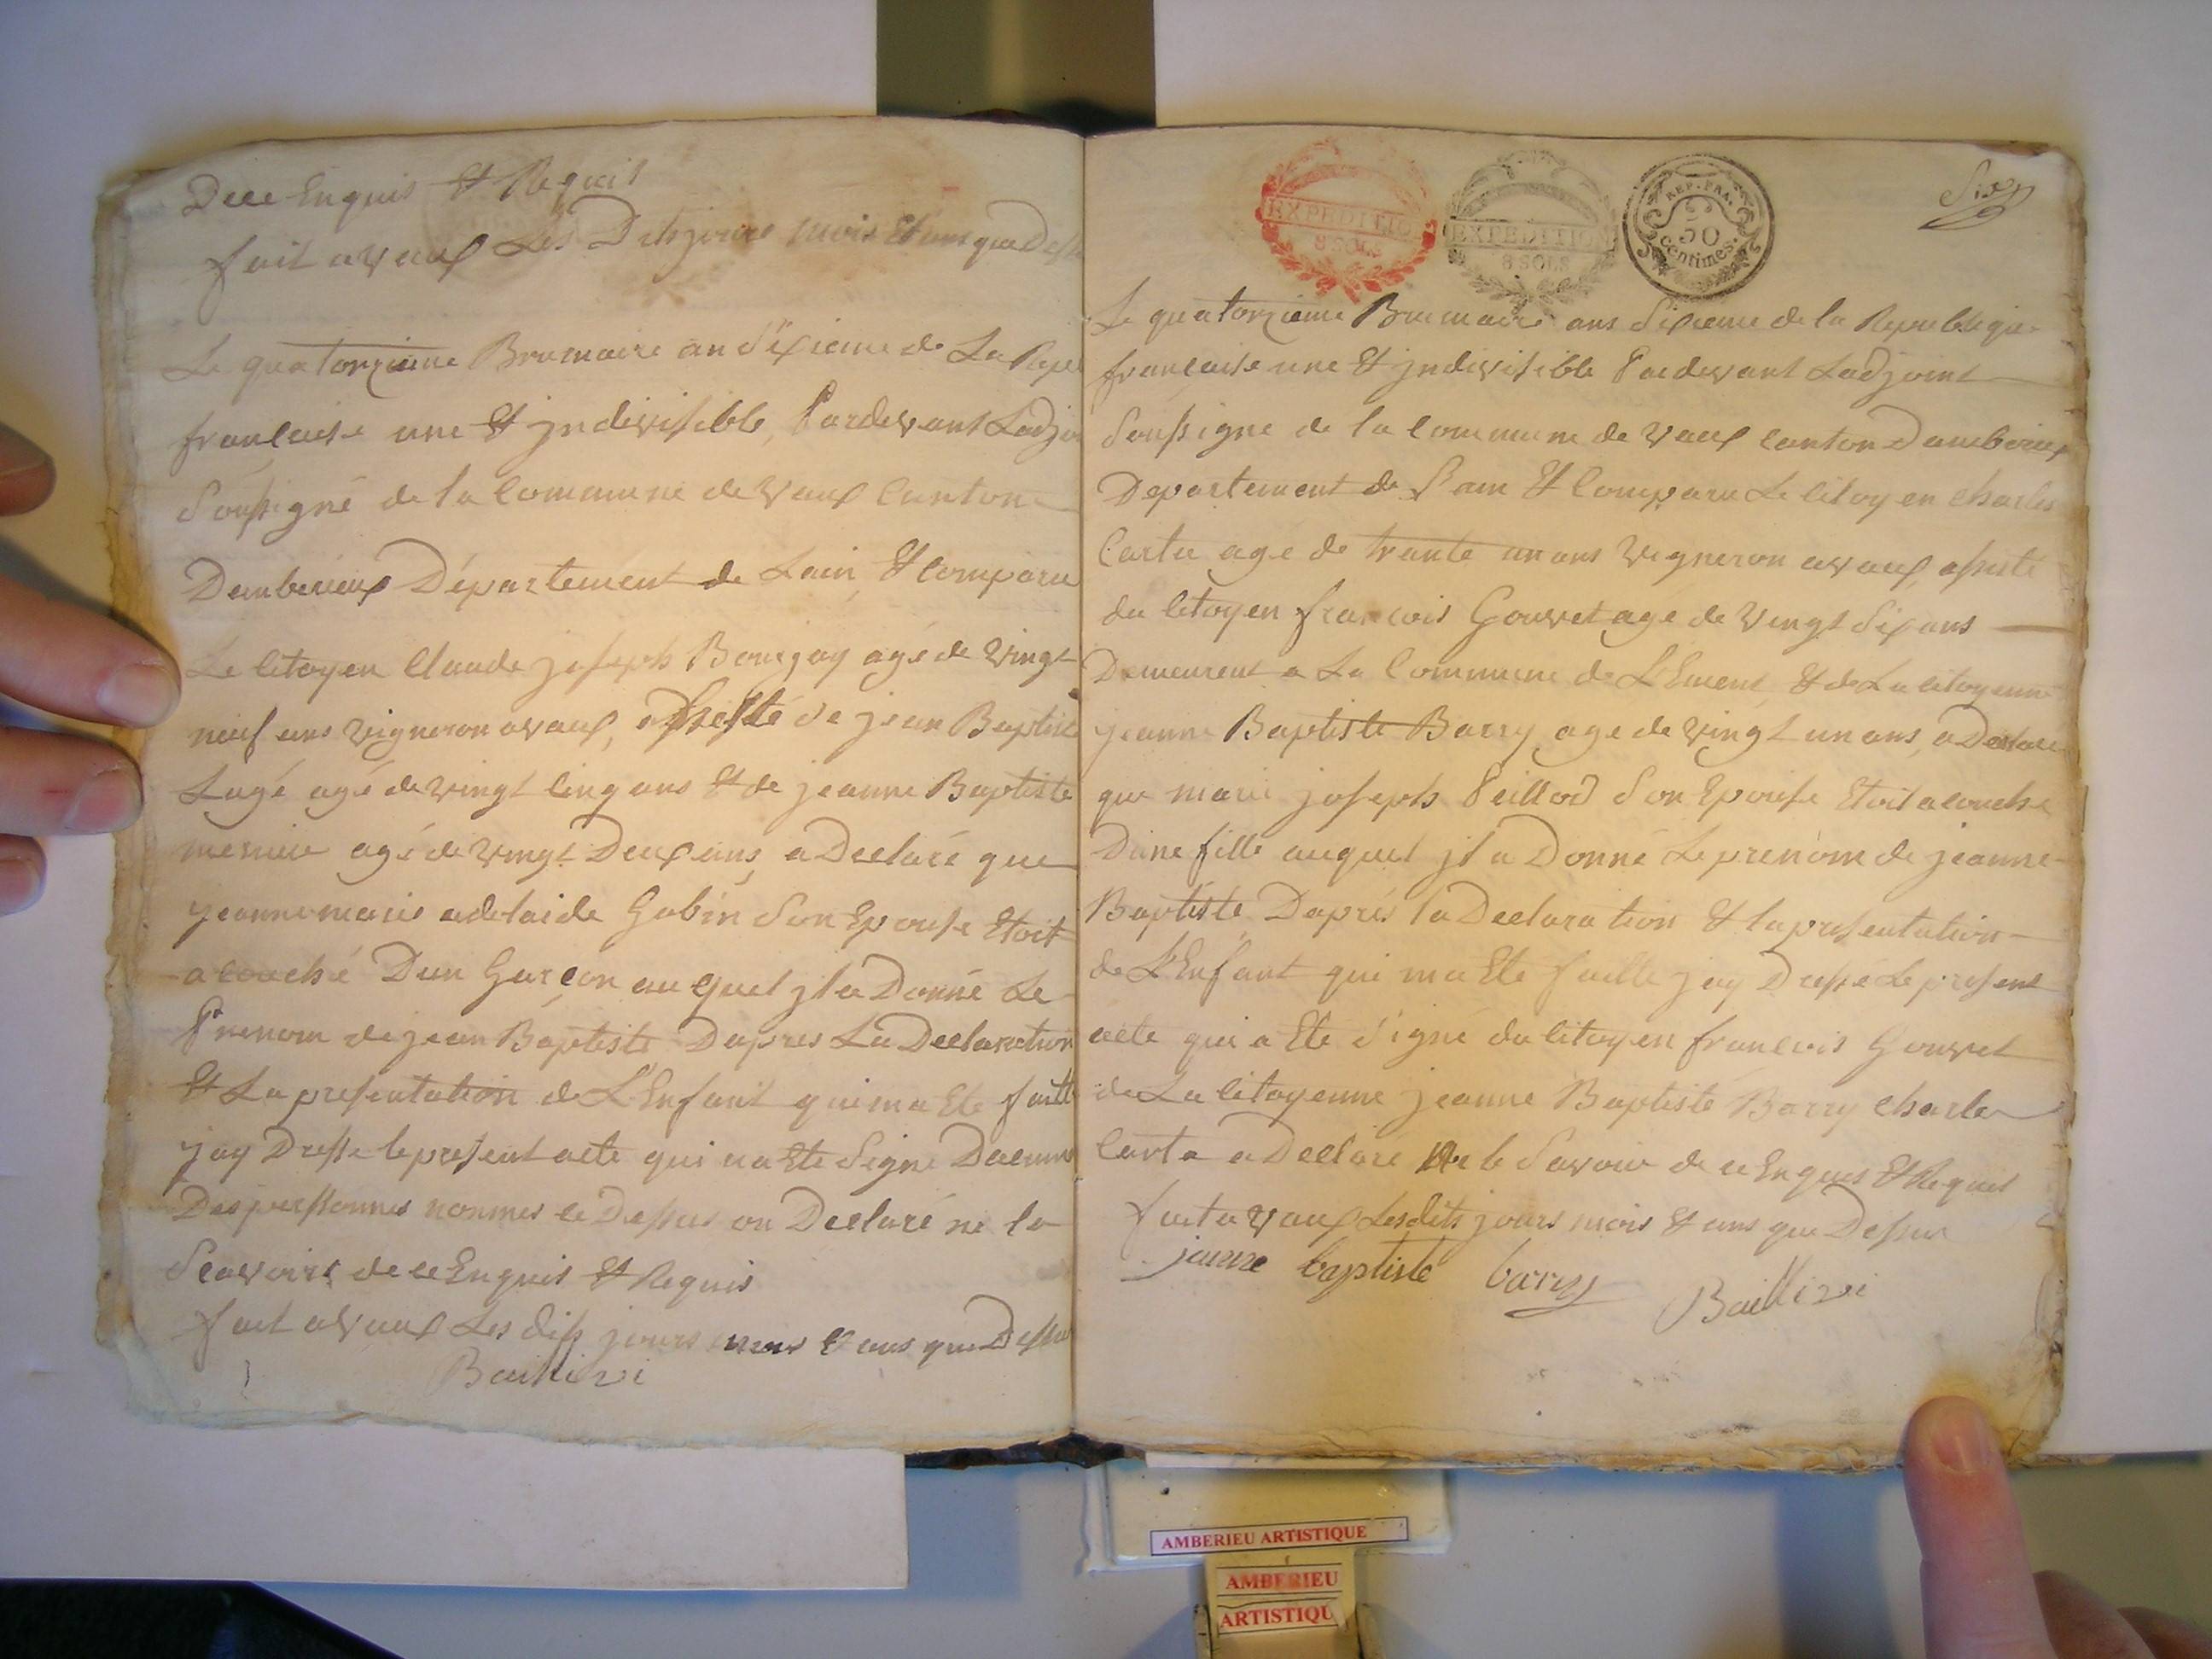 Dece Enquis Et Requis
fait avaux Les Dits jours mois Et ans que Dess
Le quatorzieme Brumaire an Sixieme de La Repu
francaise une Et jndivisible, Pardevant Ladjoi
Soussigné de la Commune de Vaux Canton
Damberieux Département de Lain, Et Comparu
Le Citoyen Claude joseph Bourgay agé de Vingt
neuf ans Vigneron avaux, assisté de jean Baptiste
Lagé agé de vingt Cinq ans Et de jeanne Baptiste
agé de Vingt Deux ans, a Declaré que
jeanne marie adelaide Gobin Son Epouse Etoit
acouché Dun Garcon auquel jl a Donné Le
Prenom de jean Baptiste Dapres La Declaration
Et La presentation de L'Enfant qui ma Ete faitte
jay Dresse le present acte qui na Ete Signe Daucune
Des perssonnes nommes ce Dessus on Declaré ne le
Scavoirs de ce Enquis Et Requis
fait avaux Les dits jours mois Et ans que Dessus
Baillivi
EXPEDITIO
8 SOLS
EXPEDITION
8 SOLS
REP. FRA.
50
centimes.
Six
Le quatorzieme Brumaire ans Sixieme de la Republique
francaise une Et jndivisible Pardevant Ladjoint
Soussigne de la Commune de Vaux Canton Damberieux
Departement de Lain Et Comparu Le Citoyen Charles
Carta agé de trante un ans Vigneron avaux, assisté
du Citoyen francois Gouvet age de Vingt Six ans
Demeurent a La Commune de L'Ement, Et de La Citoyenne
jeanne Baptiste Barry age de Vingt un ans, a Declare
que marie joseph Peillod Son Epouse Etoit acouche
Dune fille auquel jl a Donné Le prenom de jeanne
Baptiste Daprés la Declaration Et la presentation
de L'Enfant qui ma Ete faitte jay Dressé Le present
acte qui a Ete Signé du Citoyen francois Gouvet
de La Citoyenne jeanne Baptiste Barry Charles
Carta a Declaré ne le Savoir de ce Enquis Et Requis
fait a Vaux Les dits jours mois Et ans que Dessus
jeanne baptiste barry
Baillivi
AMBERIEU ARTISTIQUE
AMBERIEU
ARTISTIQU